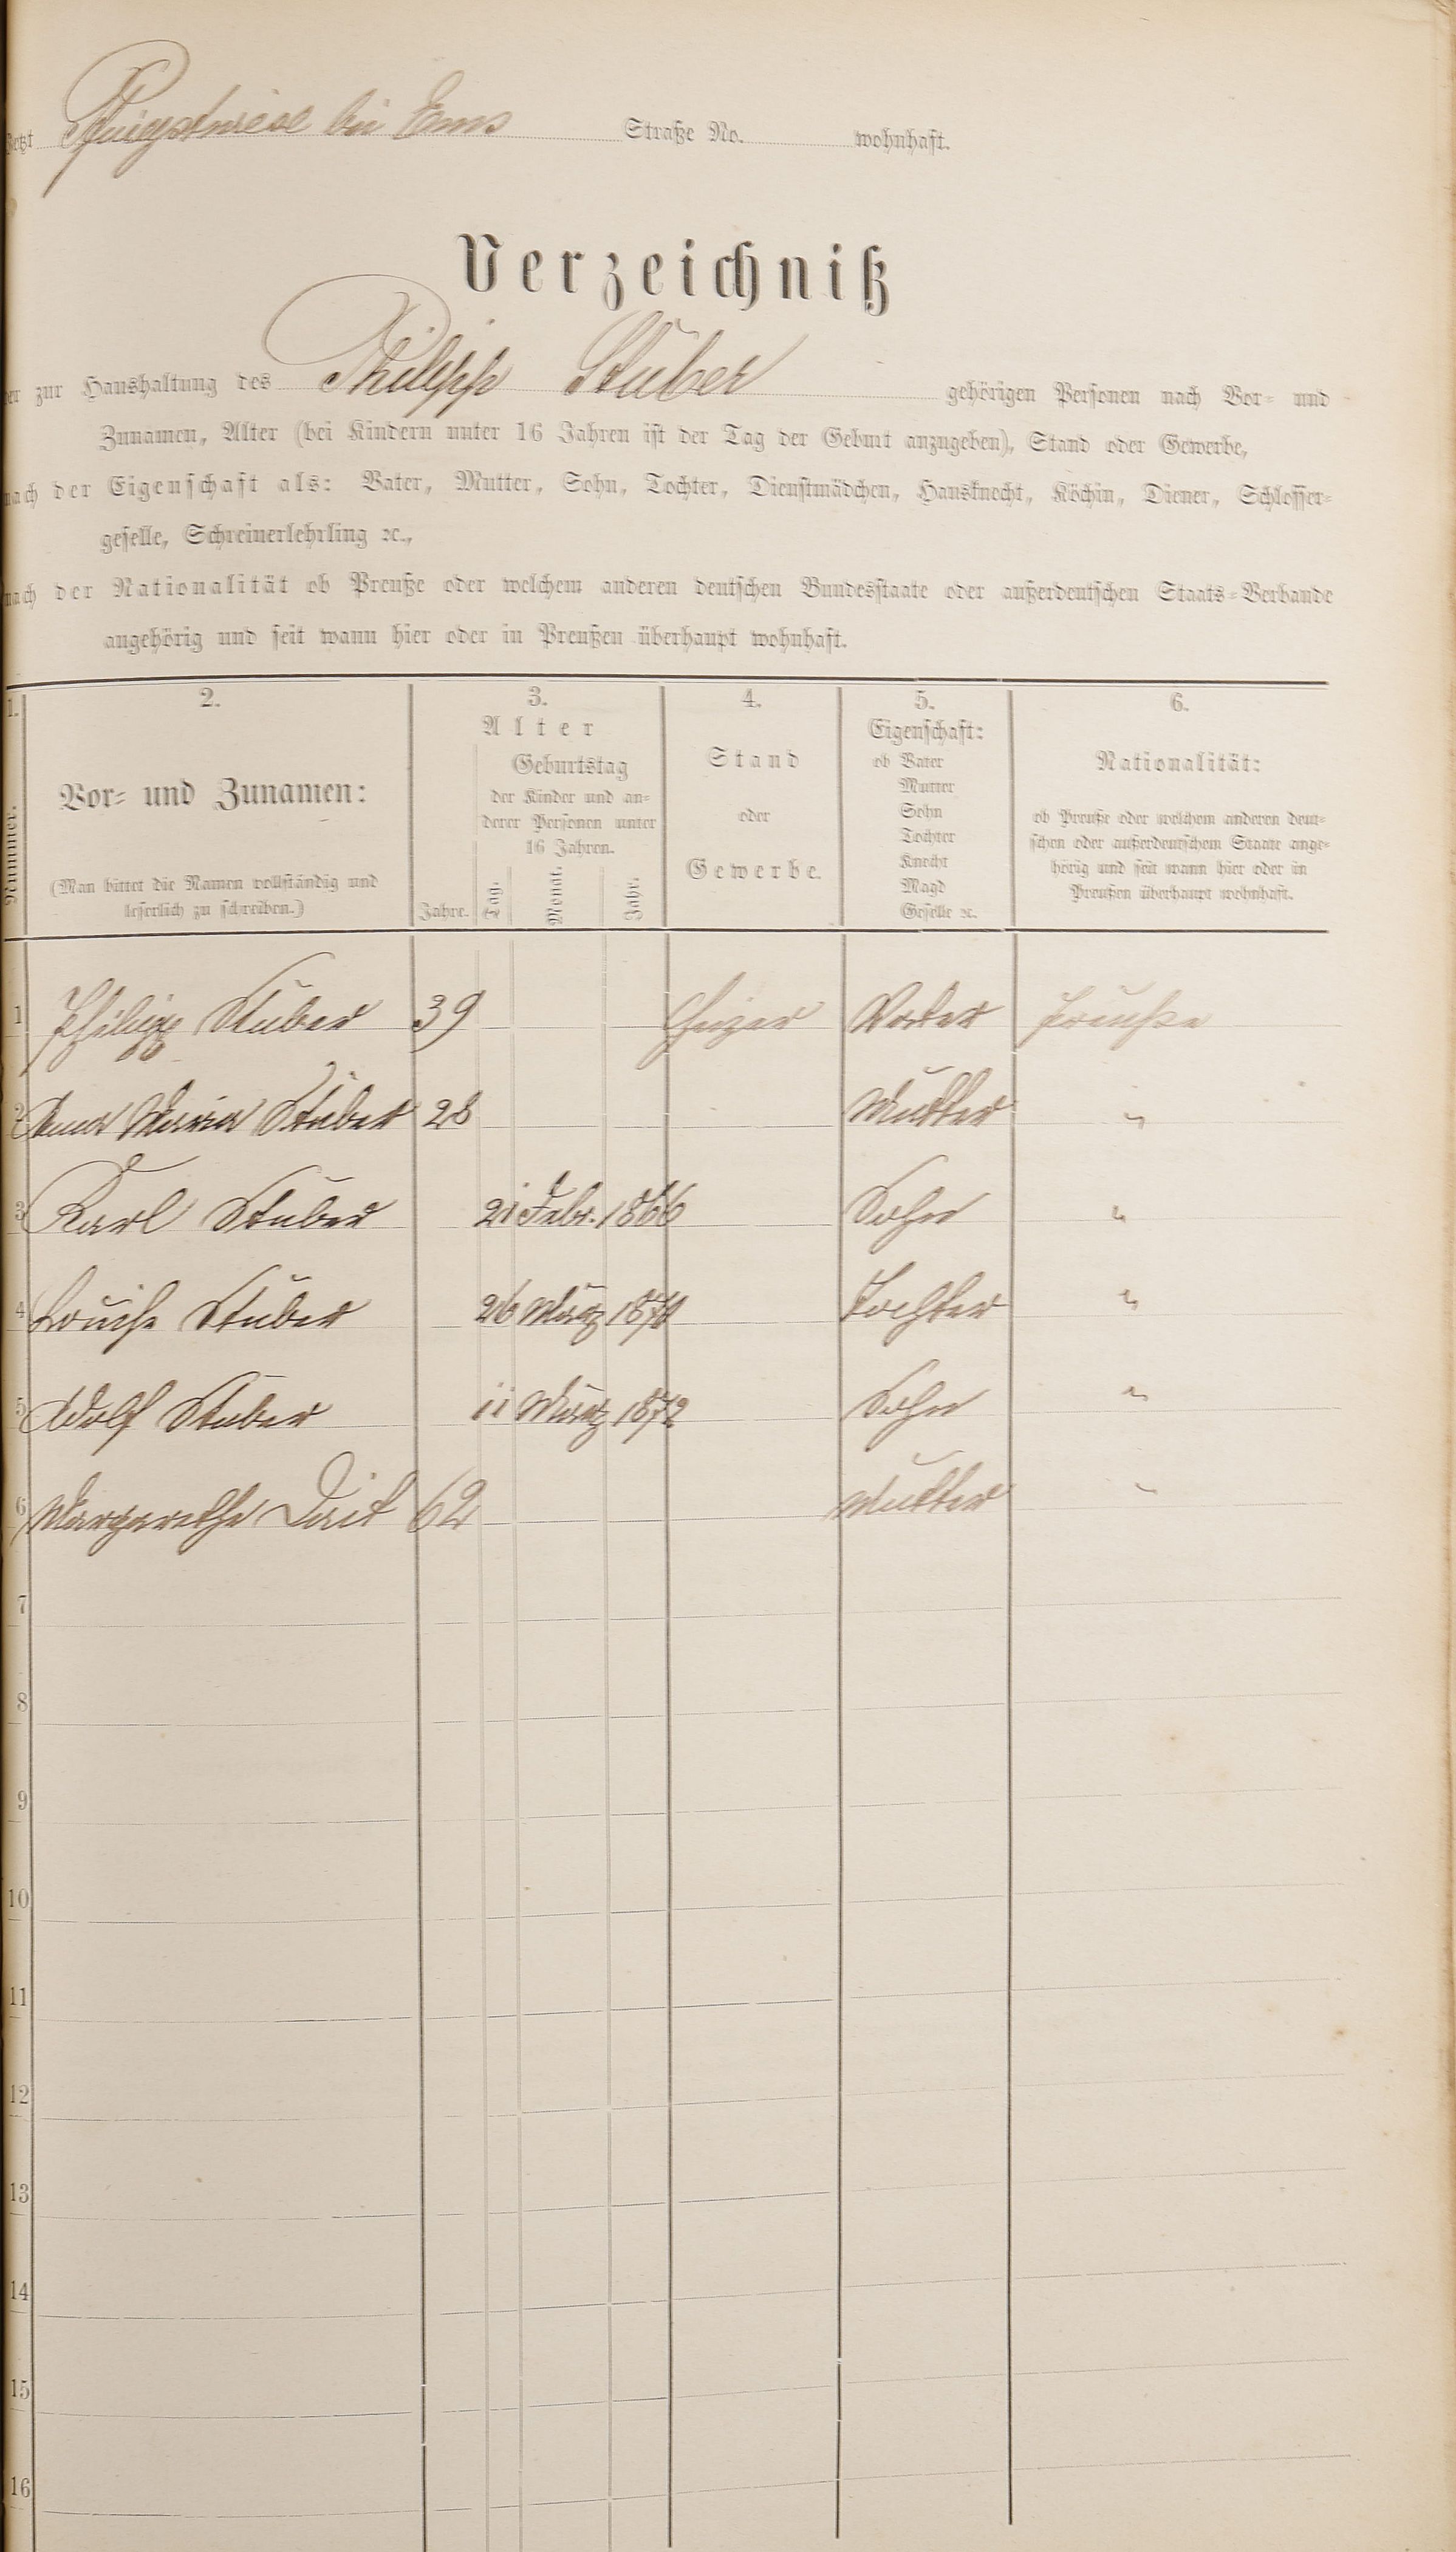 jetzt Pfingstwiese bei Ems Straße No. wohnhaft.
Verzeichniß
der zur Haushaltung des Philipp Stüber gehörigen Personen nach Vor- und
Zunamen, Alter (bei Kindern unter 16 Jahren ist der Tag der Geburt anzugeben), Stand oder Gewerbe,
nach der Eigenschaft als: Vater, Mutter, Sohn, Tochter, Dienstmädchen, Hausknecht, Köchin, Diener, Schlosser-
geselle, Schreinerlehrling ꝛc.,
nach der Nationalität ob Preuße oder welchem anderen deutschen Bundesstaate oder außerdeutschen Staats-Verbande
angehörig und seit wann hier oder in Preußen überhaupt wohnhaft.
1. 2. 3. 4. 5. 6.
Nummer.
Vor- und Zunamen:
(Man bittet die Namen vollständig und
leserlich zu schreiben.)
Alter
Geburtstag
der Kinder und an-
derer Personen unter
16 Jahren.
Jahre. Tag. Monat. Jahr.
Stand
oder
Gewerbe.
Eigenschaft:
ob Vater
Mutter
Sohn
Tochter
Knecht
Magd
Geselle ꝛc.
Nationalität:
ob Preuße oder welchem anderen deut-
schen oder außerdeutschem Staate ange-
hörig und seit wann hier oder in
Preußen überhaupt wohnhaft.
1 Philipp Stüber 39 Heizer Vater Preuße
2 Anna Maria Stüber 28 Mutter "
3 Karl Stüber 21 Febr. 1866 Sohn "
4 Louise Stüber 26 März Tochter "
5 Adolf Stüber 11 März 1872 Sohn "
6 Margarethe 62 Mutter "
7
8
9
10
11
12
13
14
15
16